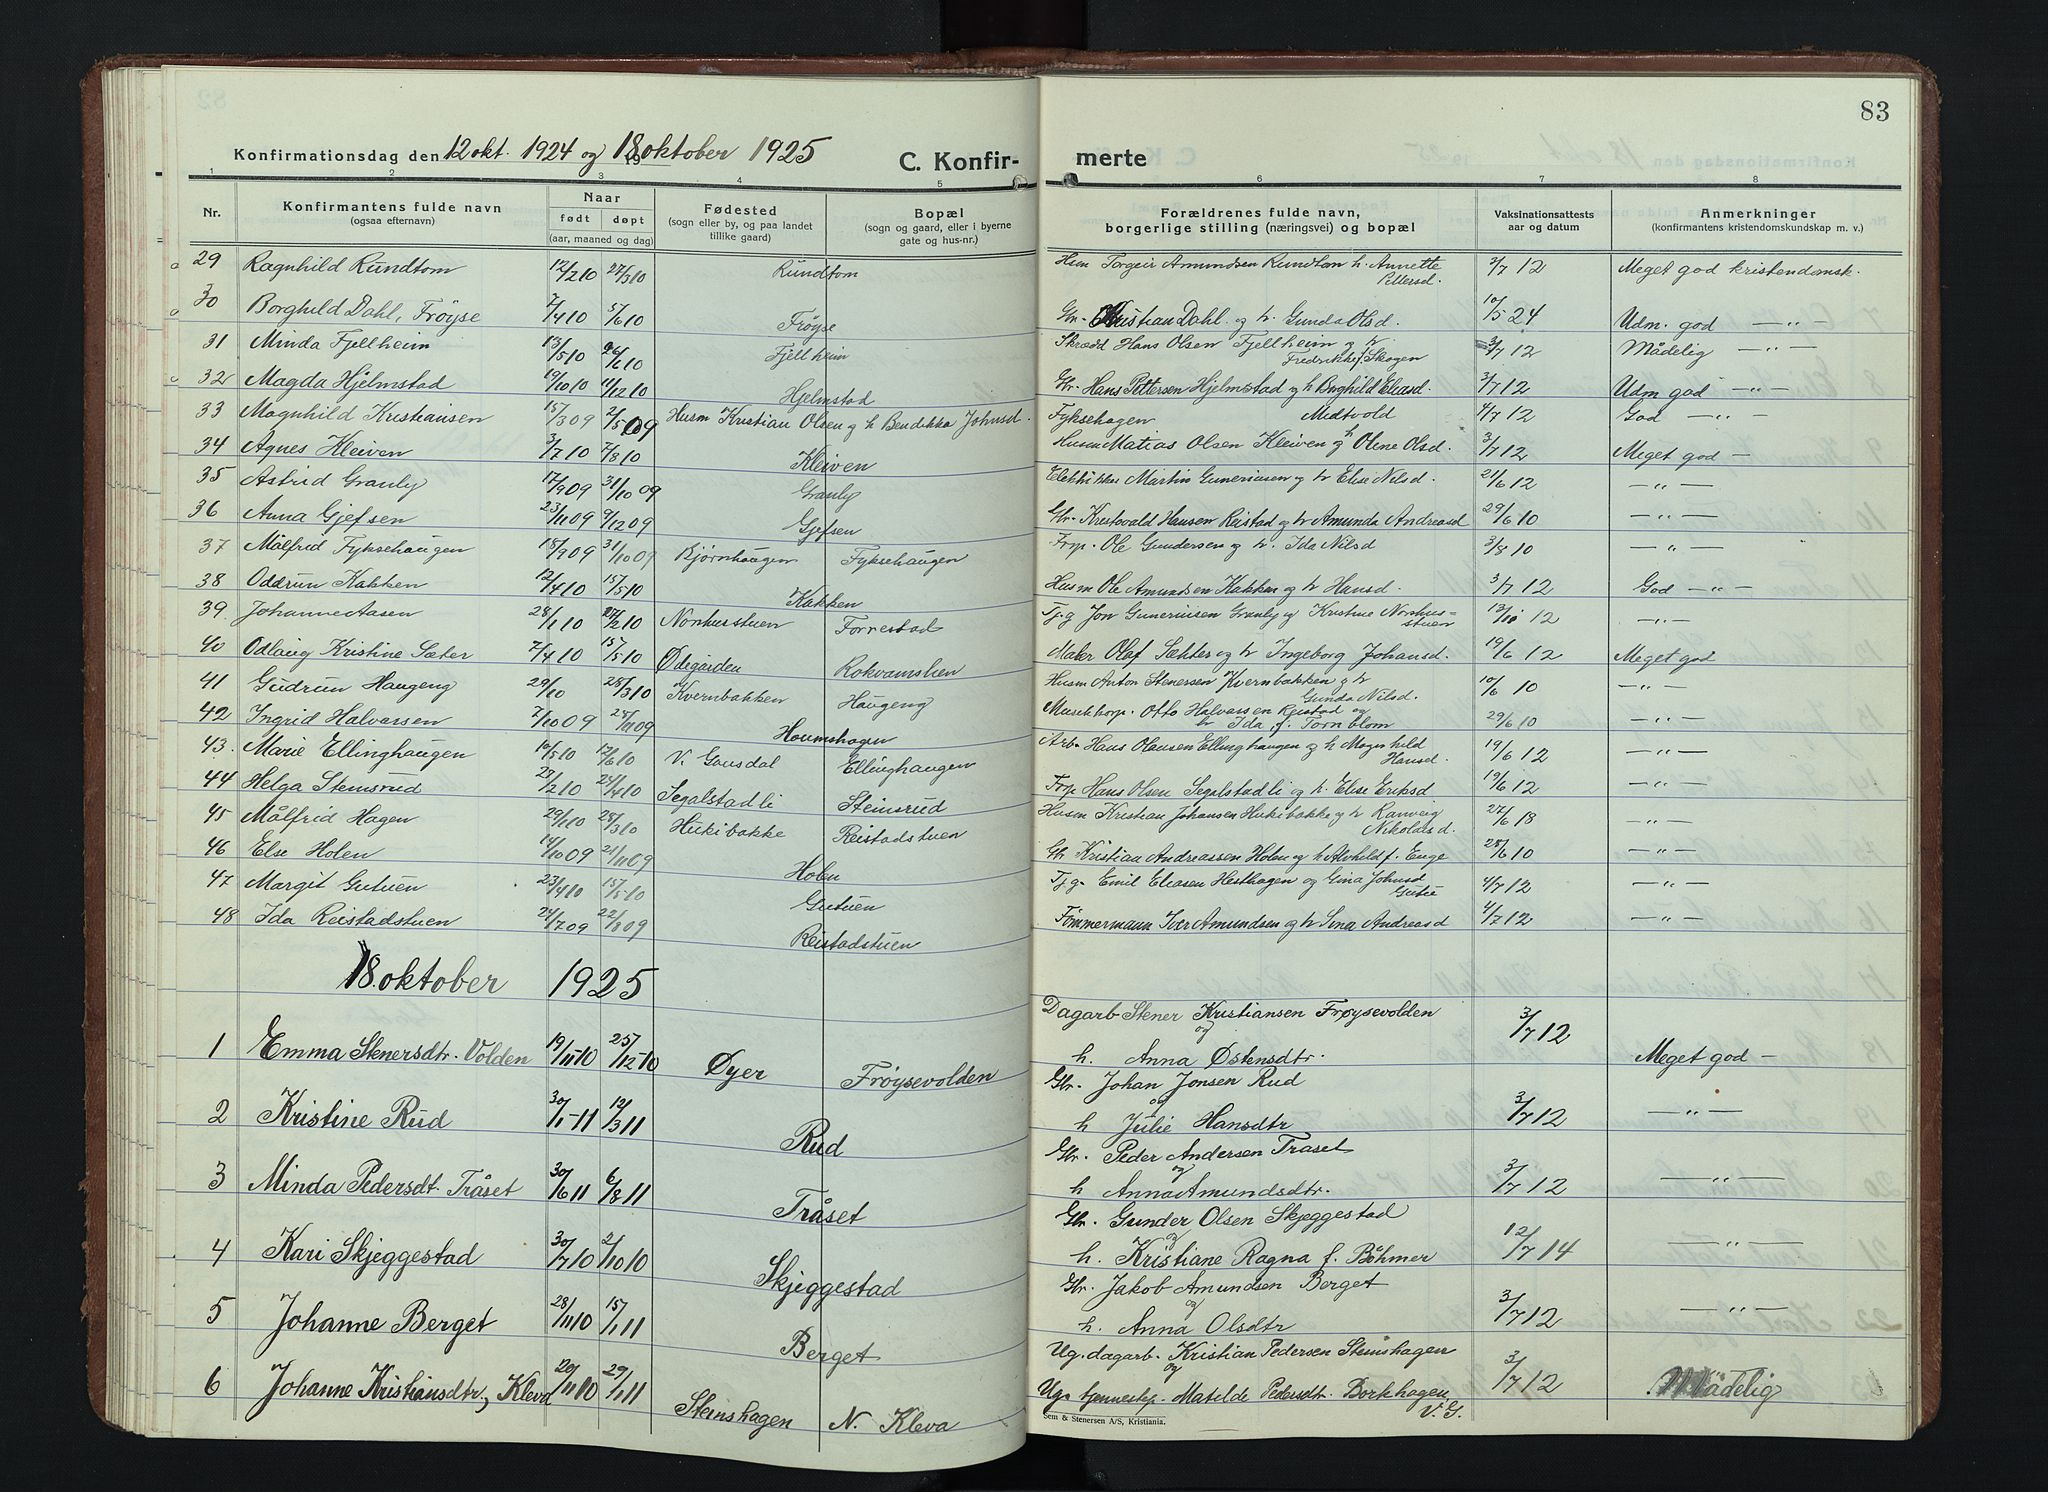 83
Konfirmationsdag den 12 okt. 1924 og 18 oktober 1925 C. Konfirmerte
1 2 3 4 5 6 7 8
Nr. Konfirmantens fulde navn (ogsaa efternavn) Naar født døpt (aar, maaned og dag) Fødested (sogn eller by, og paa landet tillike gaard) Bopæl (sogn og gaard, eller i byerne gate og hus-nr.) Forældrenes fulde navn, borgerlige stilling (næringsvei) og bopæl Vaksinationsattests aar og datum Anmerkninger (konfirmantens kristendomskundskap m. v.)
29 Ragnhild Rundtom 12/2 10 27/3 10 Rundtom Hsm Torgeir Amundsen Rundtom h. Annette Pettersd. 3/7 12 Meget god kristendomsk.
30 Borghild Dahl, Frøyse 7/4 10 5/6 10 Frøyse Gbr. Kristian Dahl og h. Gunda Olsd. 10/5 24 Udm. god — „ —
31 Minda Fjellheim 13/5 10 Fjellheim Skrædd Hans Olsen Fjellheim og h Fredrikke f. Skogen 3/7 12 Mådelig — „ —
32 Magda Hjelmstad 19/10 10 11/12 10 Hjelmstad Gbr. Hans Pettersen Hjelmstad og h Borghild Eliasd. 3/7 12 Udm god — „ —
33 Magnhild Kristiansen 15/3 09 2/5 09 Husm Kristian Olsen og h Bendikka Johnsd. Fyksehagen Medtvold 4/7 12 God — „ —
34 Agnes Kleiven 3/7 10 7/8 10 Kleiven Husm Matias Olsen Kleiven og h Oline Olsd. 3/7 12 Meget god —
35 Astrid Granly 17/9 09 31/10 09 Granly Martin Guneriusen og h Elise Nilsd. 21/6 12 — „ —
36 Anna Gjefsen 23/11 09 9/12 09 Gjefsen Gbr. Kristvald Hansen Reistad og h Amunda Andreasd 29/6 10 — „ —
37 Målfrid Fyksehaugen 18/9 09 31/10 09 Bjørnhaugen Fyksehaugen Frp. Ole Gundersen og h. Ida Nilsd 3/8 10 — „ —
38 Oddrun Kakken 12/4 10 15/5 10 Kakken Husm Ole Amundsen Kakken og h Hansd. 3/7 12 God — „ —
39 Johanne Aasen 28/1 10 27/2 10 Norhusstuen Forrestad Tj.g Jon Guneriusen Granly og Kristine Norhusstuen 12 — „ —
40 Odlaug Kristine Sæter 7/4 10 15/5 10 Ødegården Rokvamslien Maler Olaf Sæhter og h Ingeborg Johansd. 19/6 12 Meget god
41 Gudrun Haugeng 29/1 10 28/3 10 Kvernbakken Haugeng Husm Anton Stenersen Kvernbakken og h Gunda Nilsd. 10/6 10 — „ —
42 Ingrid Halvarsen 7/10 09 28/11 09 Haumshagen Otto Halvarsen Reistad og h Ida f. Tornblom 29/6 10 — „ —
43. Marie Ellinghaugen 10/5 10 12/6 10 V. Gausdal Ellinghaugen Arb. Hans Olausen Ellinghaugen og h Magnhild Hansd. 19/6 12 — „ —
44 Helga Stensrud 27/2 10 24/4 10 Segalstadli Steinsrud Frp Hans Olsen Segalstadli og h. Elise Eriksd 19/6 12 — „ —
45 Målfrid Hagen 29/1 10 28/3 10 Hukibakke Reistadstuen Husm Kristian Johansen Hukibakke og h Ranveig Nikolaisd. 27/6 18 — „ —
46 Else Holen 14/10 09 21/11 09 Holen Gb Kristian Andreassen Holen og h. Alvhild f. Enge 28/6 10 — „ —
47 Margit Gutuen 23/4 10 15/5 10 Gutuen Tj.g. Emil Eliasen Hesthagen og Gina Johnsd Gutu 4/7 12 — „ —
48 Ida Reistadstuen 24/7 09 22/8 09 Reistadstuen Tømmermann Iver Amundsen og h Sina Andreasd 4/7 12 — „ —
18. oktober 1925
1 Emma Stenersdtr. Volden 19/11-10 25/12-10 Øyer Frøysevolden Dagarb Stener Kristiansen Frøysevolden og h. Anna Østensdtr. 3/7 12 Meget god —
2 Kristine Rud 30/1-11 12/3 11 Rud Gbr. Johan Jonsen Rud og h Julie Hansdtr 3/7 12 — „ —
3 Minda Pedersdt. Tråset 30/6 11 6/8 11 Tråset Gbr. Peder Andersen Traset og h Anna Amundsdtr. 3/7 12 — „ —
4 Kari Skjeggestad 30/7 10 2/10 10 Skjeggestad Gbr. Gunder Olsen Skjeggestad og h. Kristiane Ragna f. Bøhmer 12/7 14 — „ —
5 Johanne Berget 28/11 10 15/1 11 Berget Gbr. Jakob Amundsen Berget og h. Anna Olsdtr 3/7 12 — „ —
6 Johanne Kristiansdtr, Kleva 20/11 10 29/1 11 Steinshagen N. Kleva Ug. dagarb. Kristian Pedersen Steinshagen og Ug. tjenestep. Matilde Pedersdtr. Borkhagen V. G. 3/7 12 Mådelig
Sem & Stenersen A/S, Kristiania.